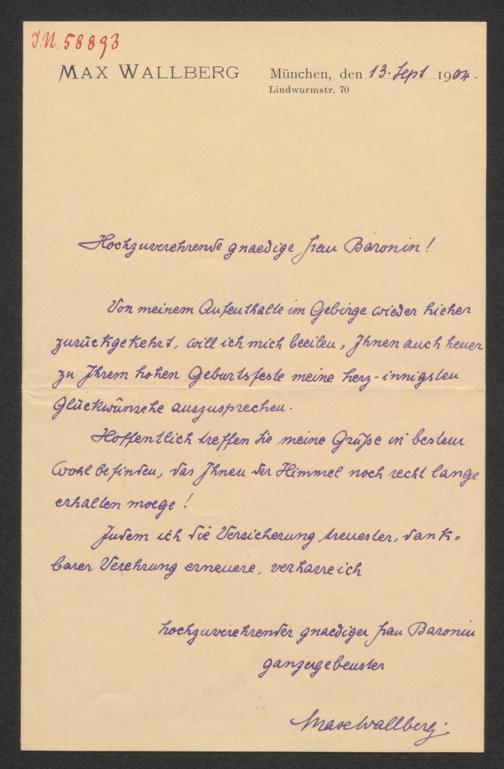 J.N. 58893
MAX WALLBERG
München, den 13. Sept 1904.
Lindwurmstr. 70
Hochzuverehrende gnaedige Frau Baronin!
Von meinem Aufenthalte im Gebirge wieder hieher
zurückgekehrt, will ich mich beeilen, Ihnen auch heuer
zu Ihrem hohen Geburtsfeste meine herz-innigsten
Glückwünsche auszusprechen.
Hoffentlich treffen Sie meine Grüße in bestem
Wohlbefinden, das Ihnen der Himmel noch recht lange
erhalten moege!
Indem ich die Versicherung treuester, dank-
barer Verehrung erneuere, verharre ich
hochzuverehrender gnaediger Frau Baronin
ganzergebenster
Max Wallberg.